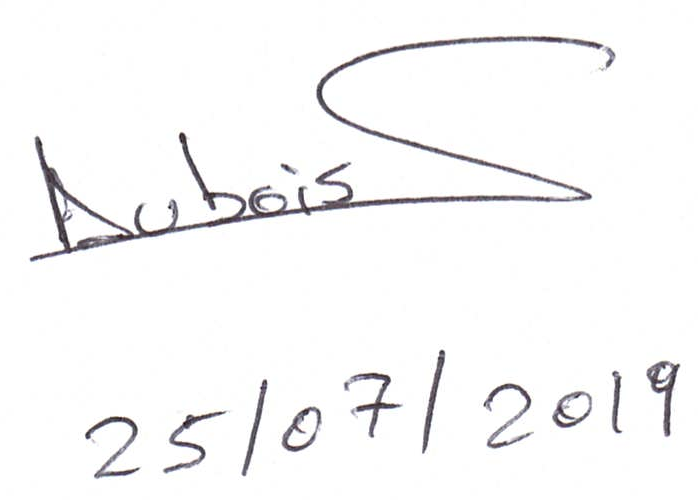 Dubois
25/07/2019